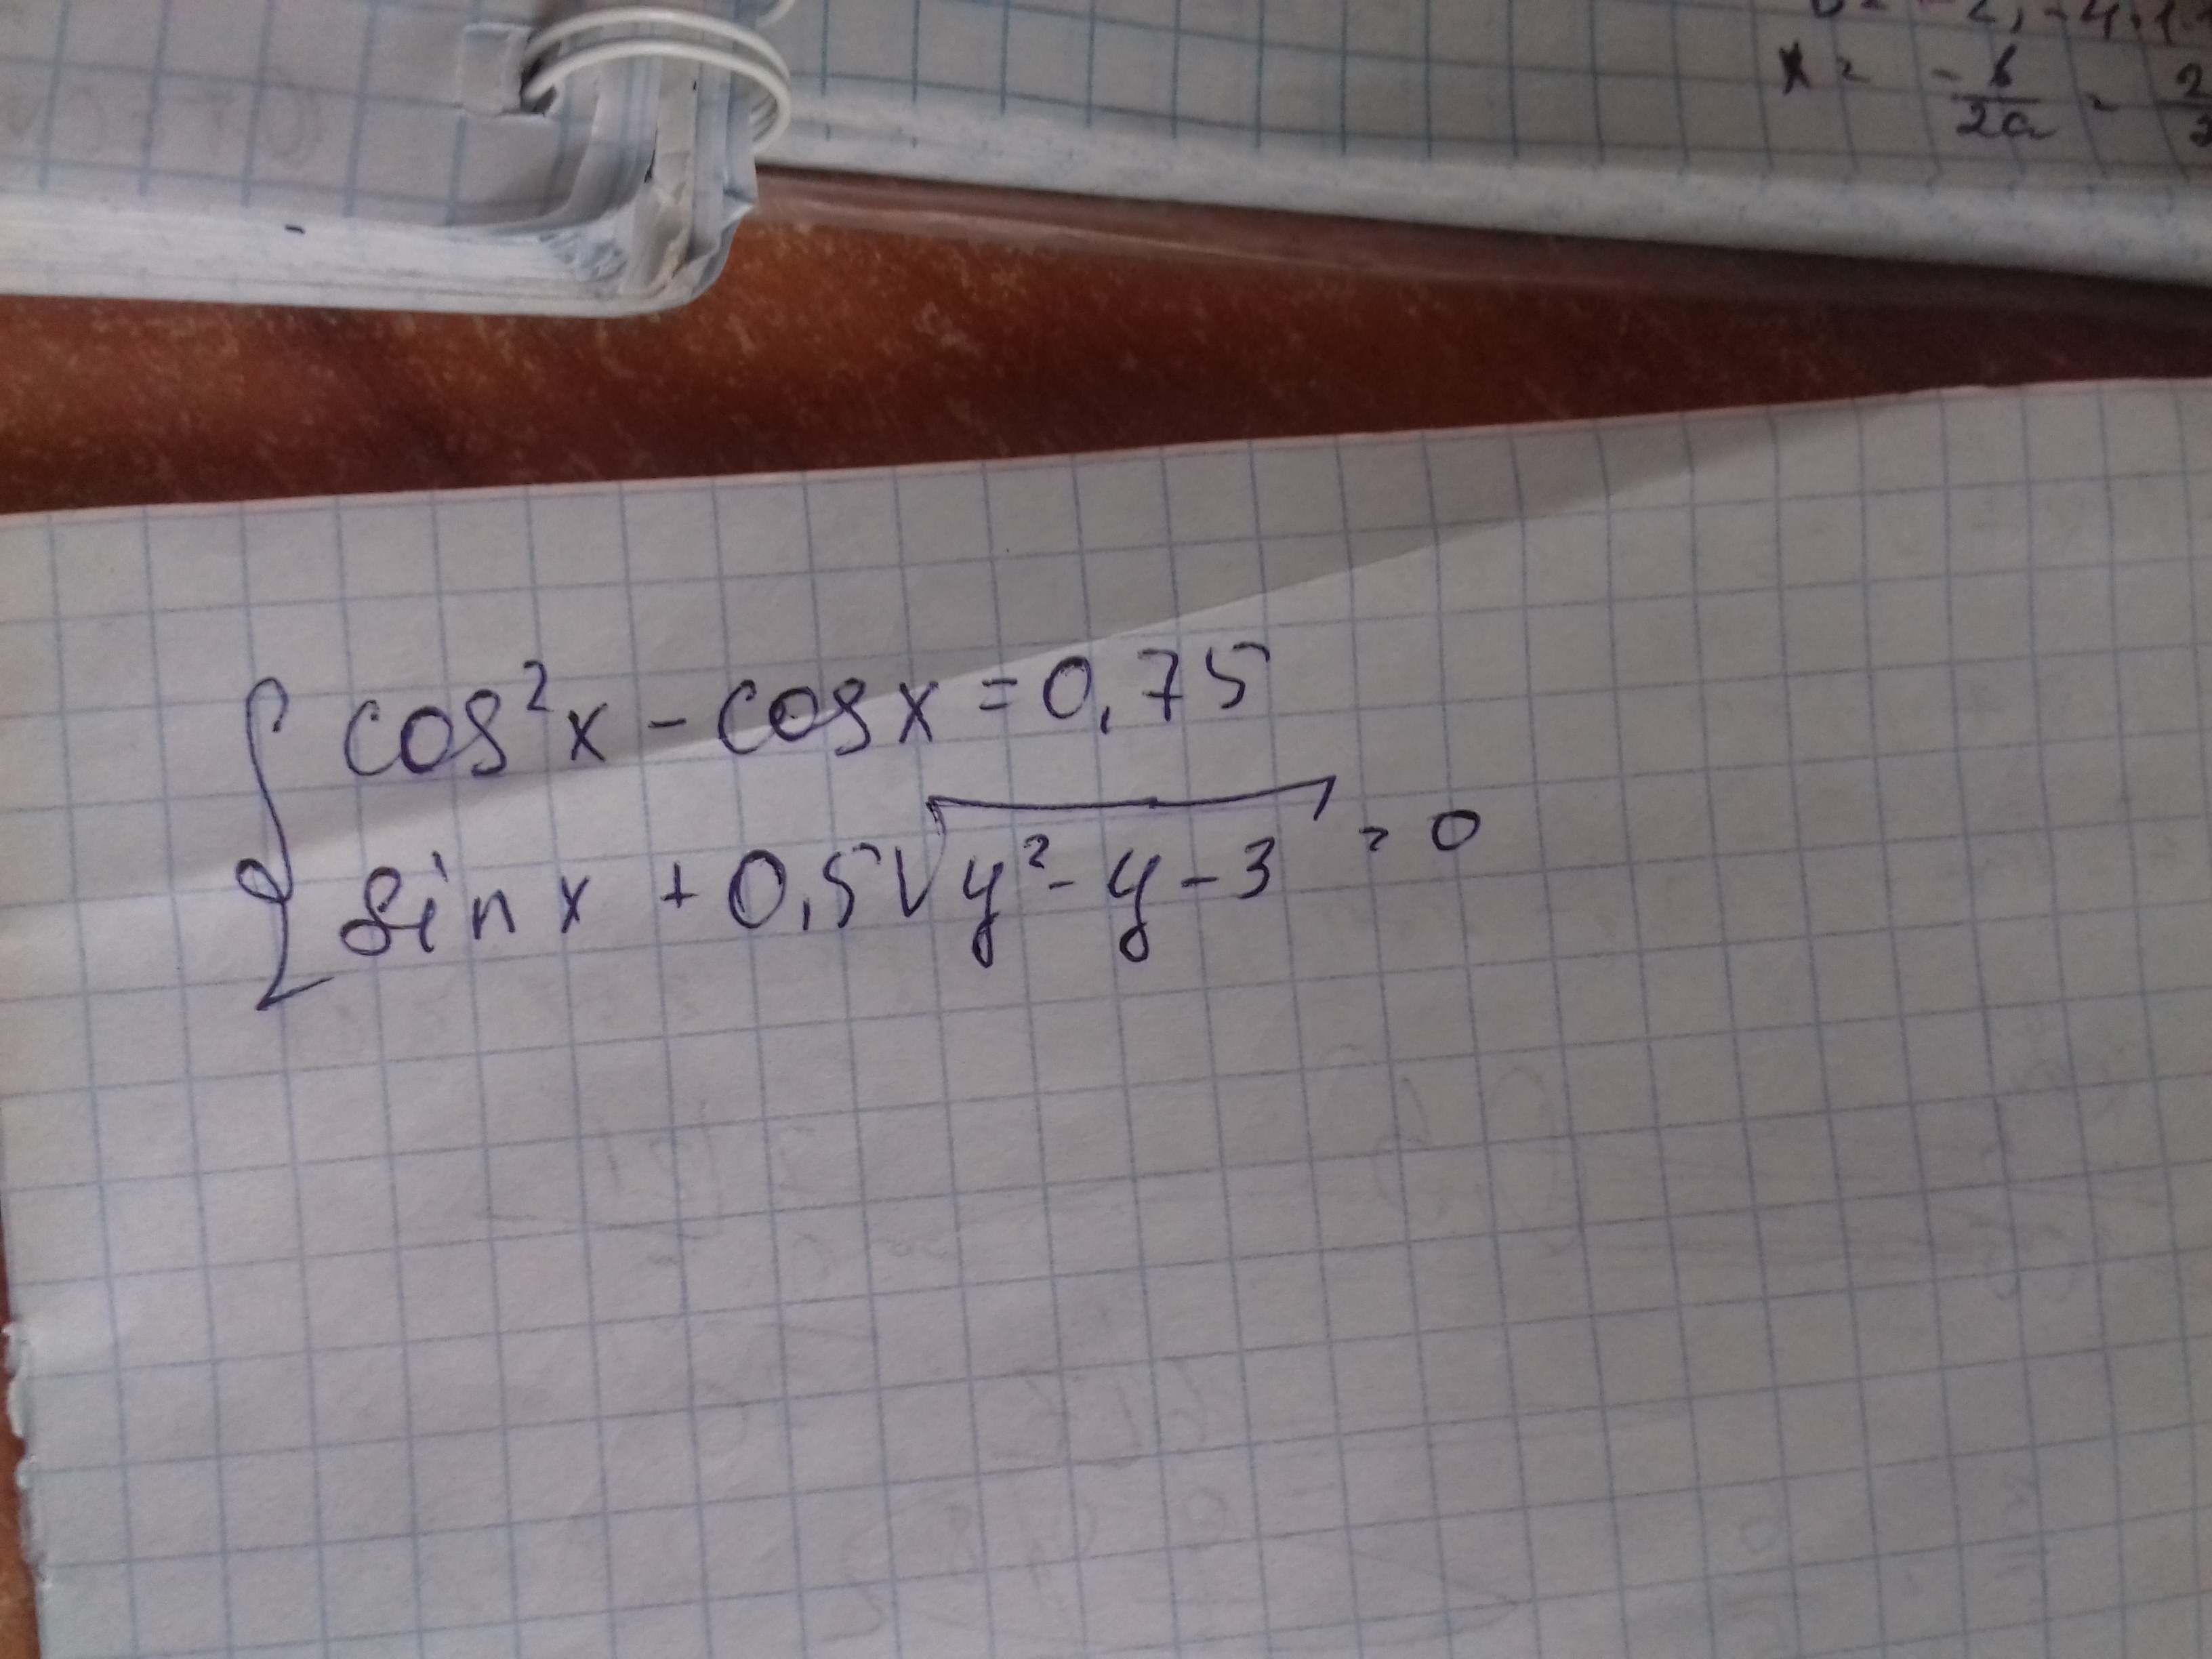 x = - b/2a = 2
cos²x - cosx = 0,75
sin x + 0,5√(y² - y - 3) = 0